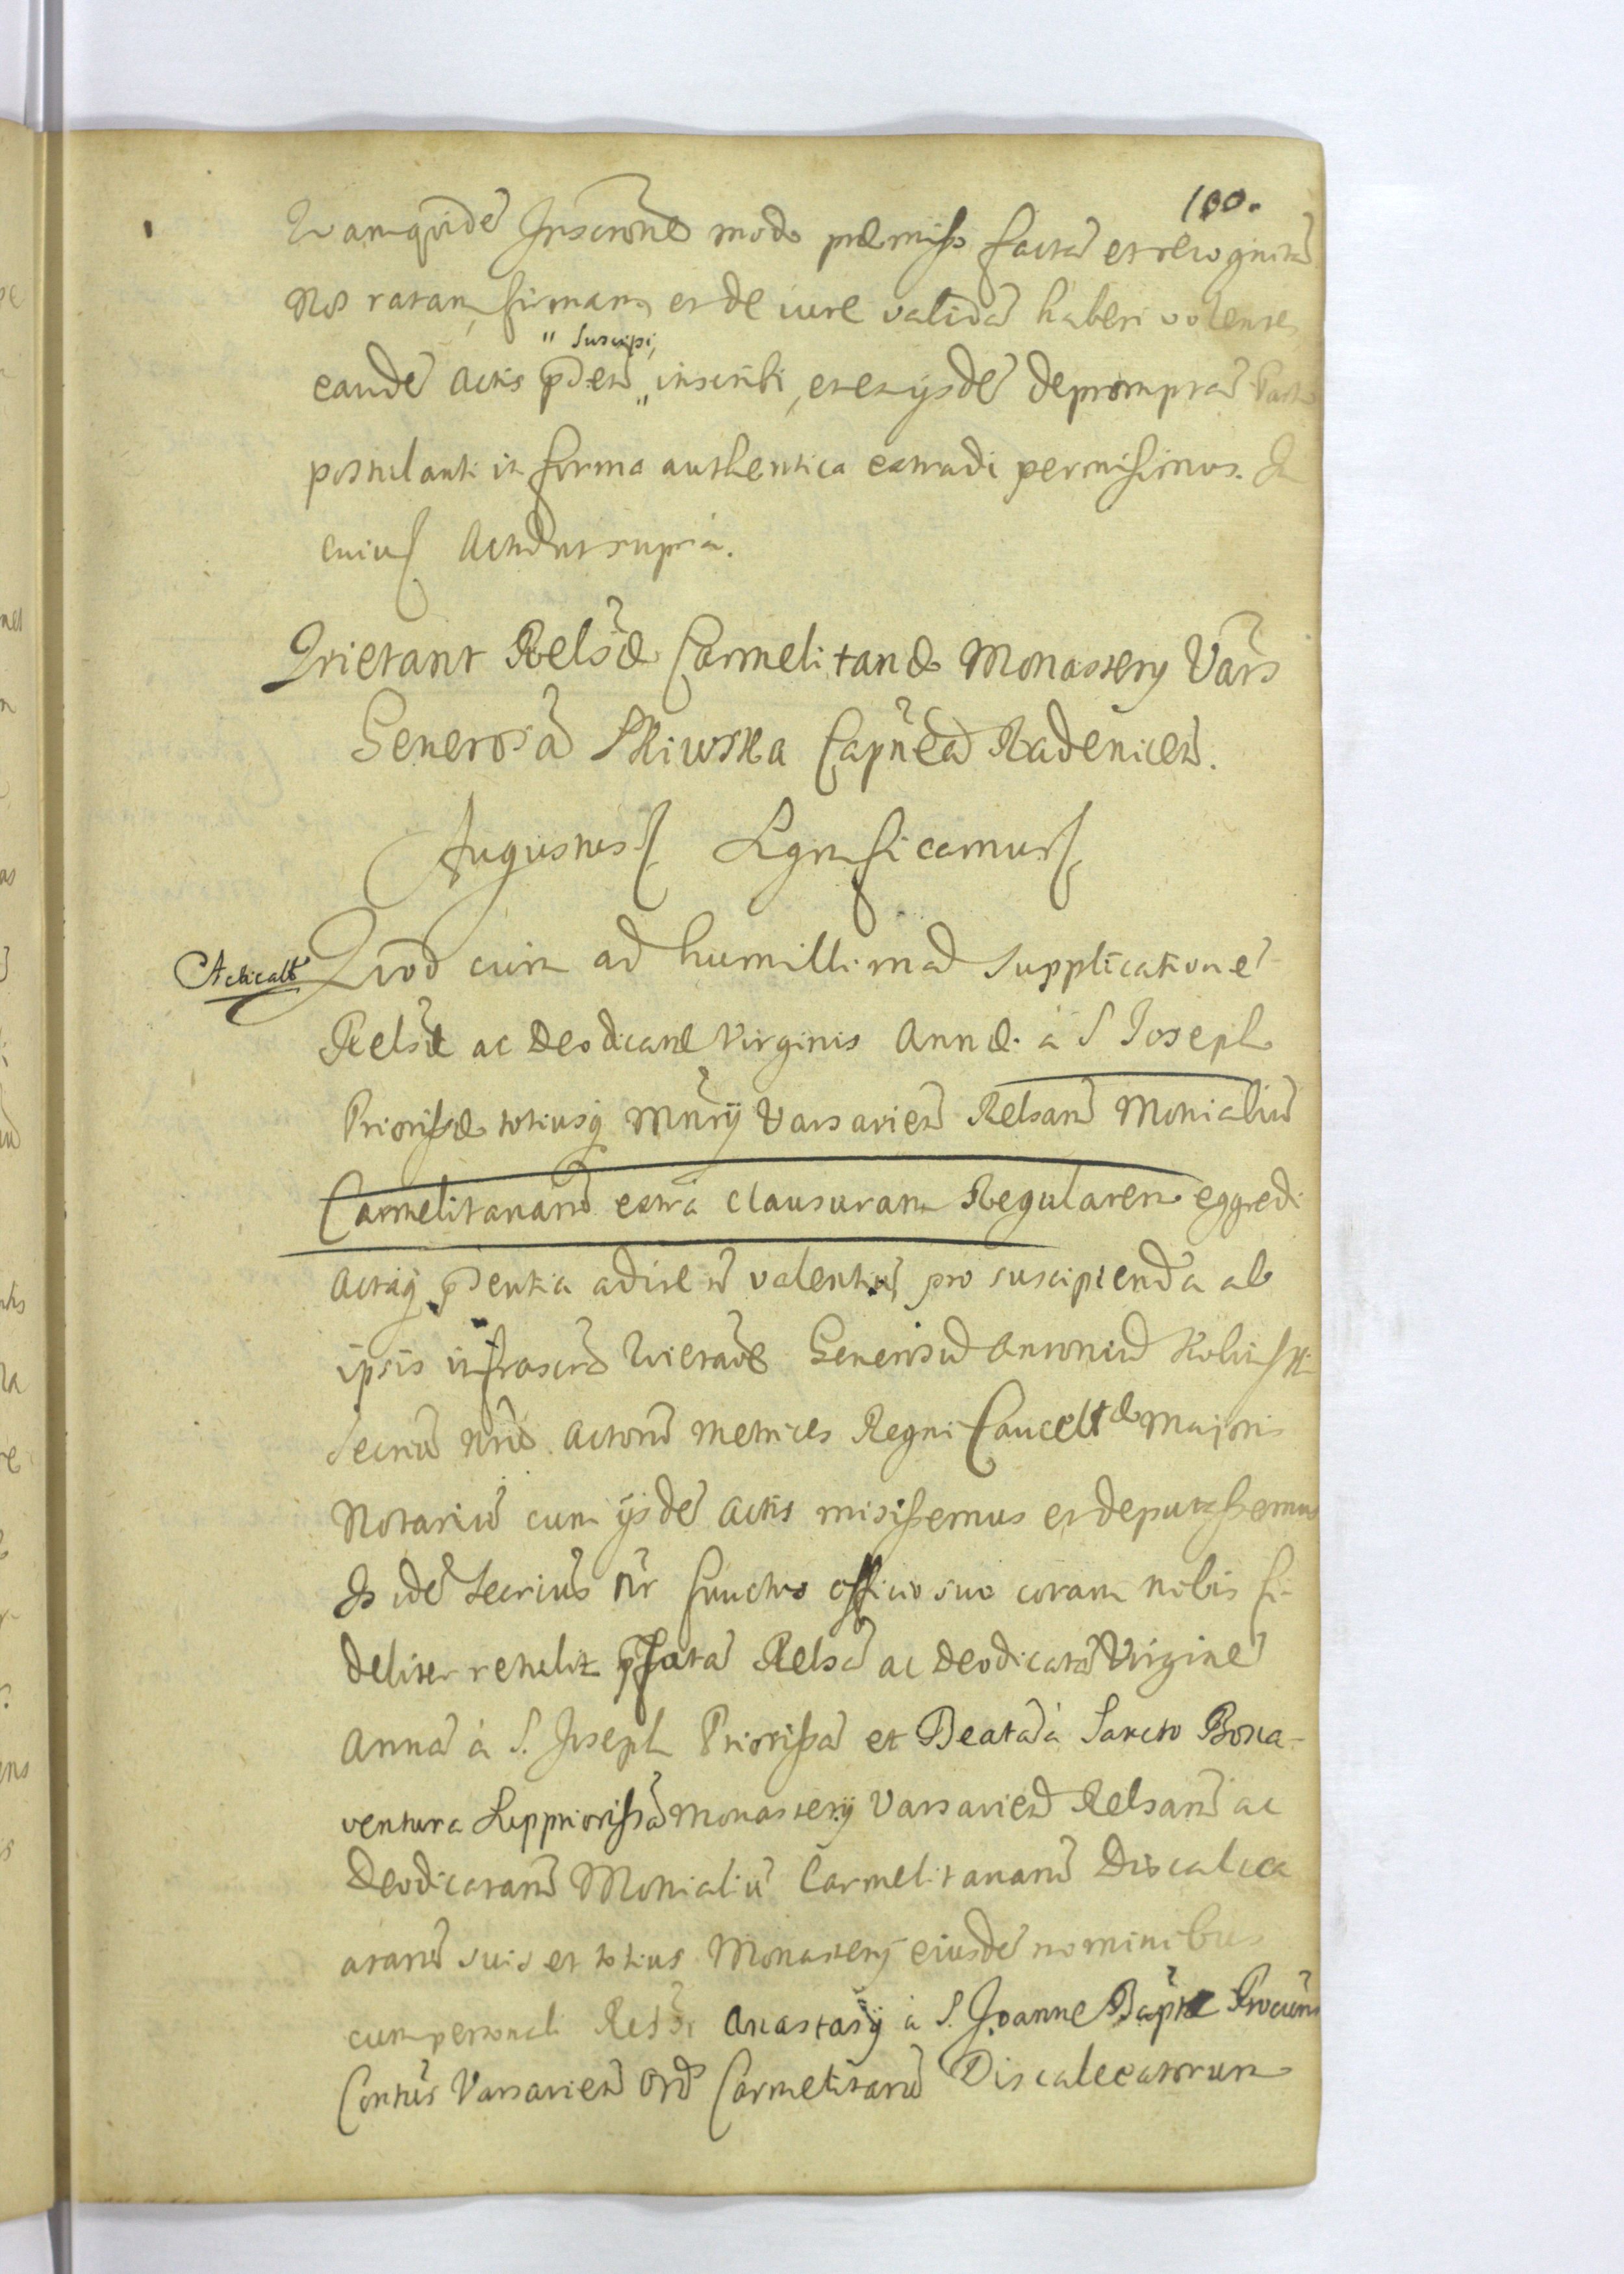 100.
Quamquidē Inscr̄onē modo præmisso factā et recognitā
Nos ratam, firmam, et de iure validā haberi volentes
" Suscipi,
eandē Actis p̄ntibū " inscribi, et ex ijsdē depromptā Parti
postulanti in forma authentica extradi permisimus. In
cuius Actū ut supra.
Quietant Relsæ Carmelitanæ Monasterij Vars
Generosā Skiwska Capn̄eā Radenicen̄.
Augustus Significamus
Acticat̄
Quod cum ad humillimā supplicationē
Relsæ ac Deodicatæ Virginis Annæ à S Joseph
Priorissæ totiusq̨ Mn̄rij Varsavien̄ Relsarū Monialiū
Carmelitanarū extra clausuram Regularem eggredi
Actaq̨ p̄ntia adire n̄ valentiū, pro suscipienda ab
ipsis infrascrā Quietan̄e Generosū Antoniū Kolinski
Secriū Nrū Actorū Metrices Regni Cancell̄æ Majoris
Notariū cum ijsdē Actis misissemus et deputassemus
Is idē Secrius Nr̄ functus officio suo coram nobis fi-
deliter retulit p̄fatā Relsā ac Deodicatā Virginē
Annā à S. Joseph Priorissā et Beatā à Sancto Bona-
ventura Suppriorissā Monasterij Varsavien̄ Relsarū ac
Deodicatarū Monialiū Carmelitanarū Discalce
atarū suis et totius Monasterij eiusdē nominibus
cum personali Rel̄si Anastasij à S. Joanne Bap̄tæ Procur̄is
Conv̄tus Varsavien̄ Ord̄ Carmelitarū Discalceatorum